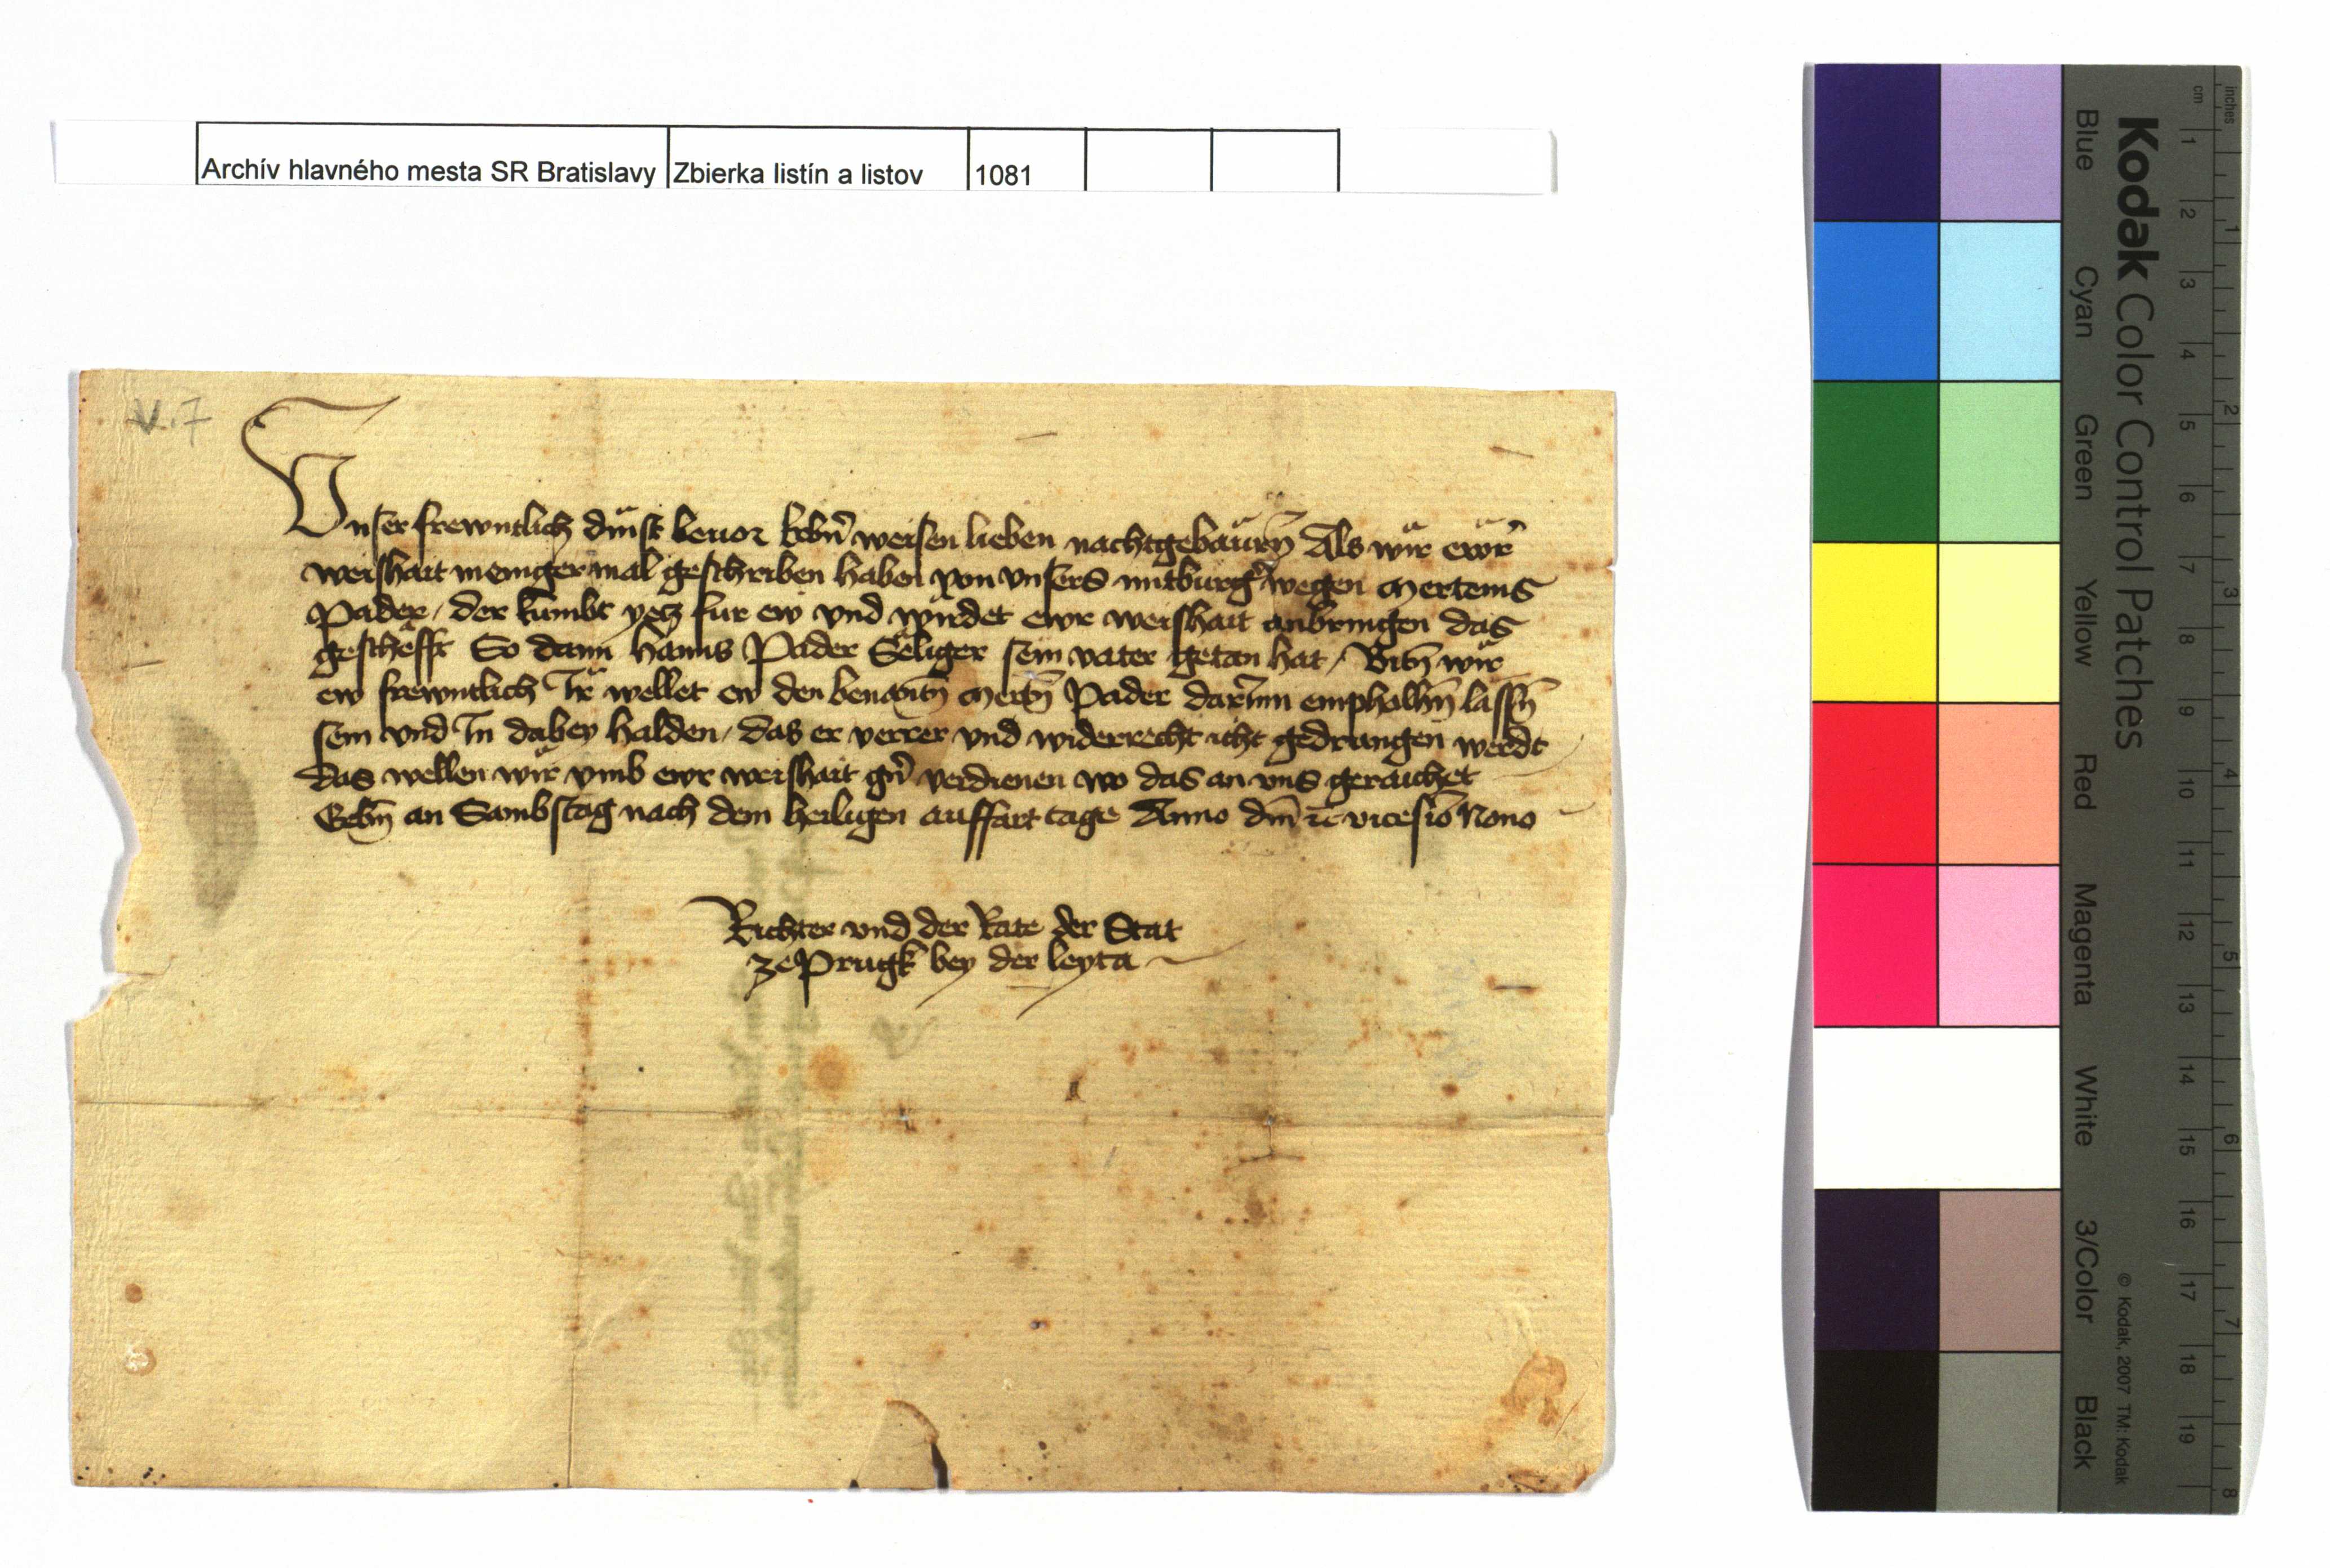 Archív hlavného mesta SR Bratislavy Zbierka listín a listov 1081
V. 7
Vnser frewntlich dinst beuor Erbn weisen lieben nachtgebaurn Als wir ewr
weishait meniger mal geschriben haben von vnsers mitburg wegen Mertems
Pader / der kumbt yetz fur ew vnd wirdet ewr weishait anbringen das
geschefft So dann Hanns Pader Seliger sein vater getan hat / Bitn wir
ew frewntlich Ir wellet ew den benantn Mertn Pader darinn empholhn lassn
sein vnd In dabey halden / das er verrer vnd widerrecht icht gedrangen werdt
das wellen wir vmb ewr weishait gn verdienen wo das an vns geraichet
Gebn an Sambstag nach dem heiligen auffart tage Anno dm rc vicesio Nono
Richter vnd der Rate der Stat
ze Prugk bey der leyta
Kodak Color Control Patches
Blue Cyan Green Yellow Red Magenta White 3/Color Black
© Kodak, 2007 TM: Kodak
cm 1 2 3 4 5 6 7 8 9 10 11 12 13 14 15 16 17 18 19
inches 1 2 3 4 5 6 7 8